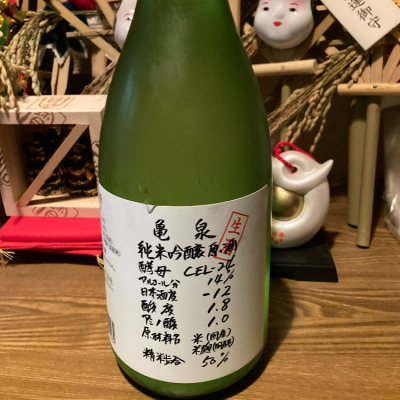 開運御守
亀泉
生酒
純米吟醸原酒
酵母 CEL-24
アルコール分 14%
日本酒度 -12
酸度 1.8
アミノ酸 1.0
原材料名 米(国産)
米麹(国産米)
精米歩合 50%